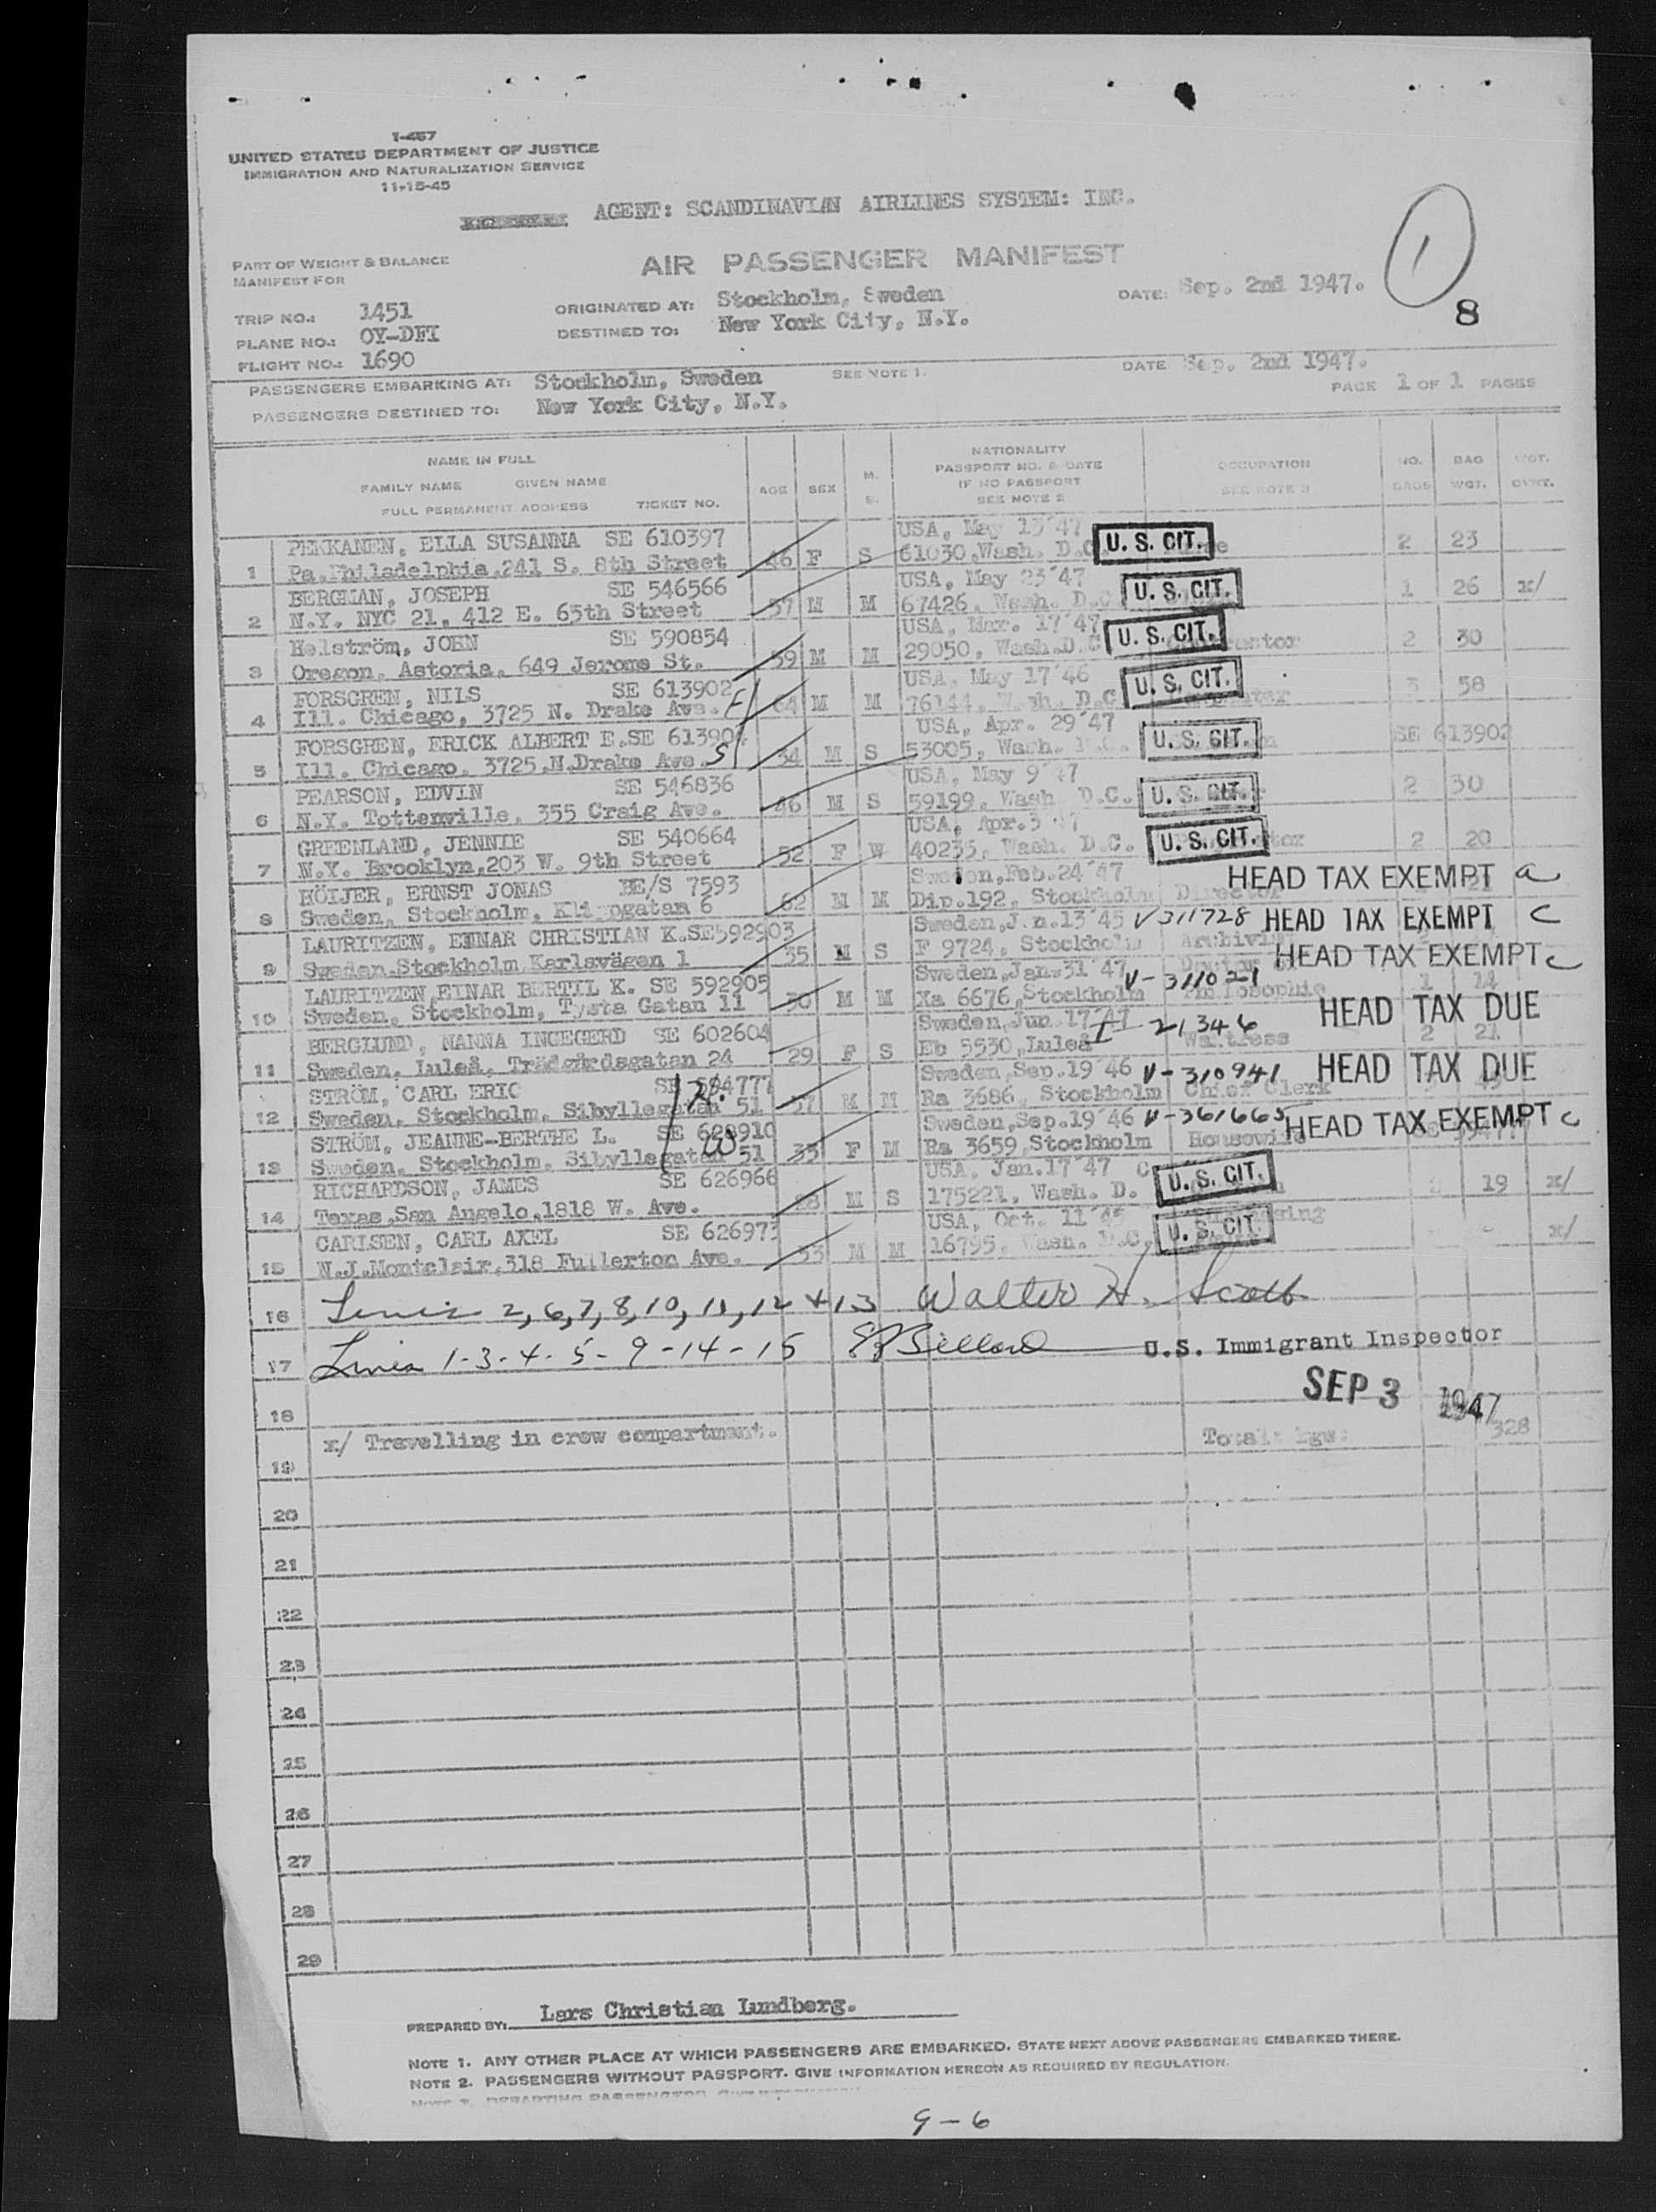 I-467
UNITED STATES DEPARTMENT OF JUSTICE
IMMIGRATION AND NATURALIZATION SERVICE
11-15-45
AGENT: SCANDINAVIAN AIRLINES SYSTEM: INC.
1
8
PART OF WEIGHT & BALANCE
MANIFEST FOR
AIR PASSENGER MANIFEST
TRIP NO.: 1451 ORIGINATED AT: Stockholm, Sweden DATE: Sep. 2nd 1947.
PLANE NO.: OY-DFI DESTINED TO: New York City, N.Y.
FLIGHT NO.: 1690
PASSENGERS EMBARKING AT: Stockholm, Sweden SEE NOTE 1. DATE Sep. 2nd 1947.
PASSENGERS DESTINED TO: New York City, N.Y. PAGE 1 OF 1 PAGES
NAME IN FULL
FAMILY NAME GIVEN NAME
FULL PERMANENT ADDRESS TICKET NO.
AGE SEX M. S.
NATIONALITY
PASSPORT NO. & DATE
IF NO PASSPORT
SEE NOTE 2
OCCUPATION
SEE NOTE 3
NO. BAGS BAG WGT. WGT.
PEKKANEN, ELLA SUSANNA SE 610397 USA, May 13'47
1 Pa.Philadelphia,241 S. 8th Street 46 F S 61030,Wash. D.C. U. S. CIT. 2 23
BERGMAN, JOSEPH SE 546566 USA, May 23'47
2 N.Y. NYC 21, 412 E. 65th Street 57 M M 67426, Wash. D.C. U. S. CIT. 1 26 x/
Helström, JOHN SE 590854 USA, Mar. 17'47
3 Oregon, Astoria, 649 Jerome St. 59 M M 29050, Wash.D.C U. S. CIT. 2 30
FORSGREN, NILS SE 613902 F USA, May 17'46
4 Ill. Chicago, 3725 N. Drake Ave. 64 M M 76144, Wash. D.C U. S. CIT. 3 58
FORSGREN, ERICK ALBERT E.SE USA, Apr. 29'47
5 Ill. Chicago. 3725.N.Drake Ave. S 34 M S 53005, Wash. D.C. U. S. CIT. SE 613902
PEARSON, EDVIN SE 546836 USA, May 9'47
6 N.Y. Tottenville, 355 Craig Ave. 46 M S 59199, Wash D.C. U. S. CIT. 2 30
GREENLAND, JENNIE SE 540664 USA, Apr.3'47
7 N.Y. Brooklyn,203 W. 9th Street 52 F W 40235, Wash. D.C. U. S. CIT. 2 20
HÖIJER, ERNST JONAS BE/S 7593 Sweden,Feb.24'47 HEAD TAX EXEMPT a
8 Sweden, Stockholm, gatan 6 62 M M Dip.192, Stockholm Director
LAURITZEN, EINAR CHRISTIAN K.SE592903 Sweden,Jan.13'45 V 311728 HEAD TAX EXEMPT C
9 Sweden.Stockholm,Karlsvägen 1 35 M S F 9724, Stockholm
LAURITZEN,EINAR BERTIL K. SE 592905 Sweden,Jan.31'47 V-311021 HEAD TAX EXEMPT c
10 Sweden, Stockholm, Tysta Gatan 11 30 M M Xa 6676,Stockholm 1 14
BERGLUND, NANNA INGEGERD SE 602604 Sweden,Jun.17'47 I-21346 HEAD TAX DUE
11 Sweden, Luleå, Trädgårdsgatan 24 29 F S Eb 5530,Luleå Waitress 2 21
STRÖM, CARL ERIC SE Sweden,Sep.19'46 V-310941 HEAD TAX DUE
12 Sweden, Stockholm, Sibyllegatan 51 37 M M Ra 3686, Stockholm Chief Clerk
STRÖM, JEANNE-BERTHE L. SE 628910 W Sweden,Sep.19'46 V-361665 HEAD TAX EXEMPT c
13 Sweden, Stockholm, Sibyllegatan 51 33 F M Ra 3659,Stockholm Housewife
RICHARDSON, JAMES SE 626966 USA, Jan.17'47 C
14 Texas,San Angelo,1818 W. Ave. 28 M S 175221, Wash. D. U. S. CIT. 19 x/
CARLSEN, CARL AXEL SE 626973 USA, Oct. 11'45
15 N.J.Montclair,318 Fullerton Ave. 53 M M 16795, Wash. D.C. U. S. CIT. x/
16 Lines 2,6,7,8,10,11,12 & 13 Walter H. Scott
17 Lines 1-3-4-5-9-14-15 U.S. Immigrant Inspector
SEP 3 1947
18
x/ Travelling in crew compartment. Total: kgs: 328
19
20
21
22
23
24
25
26
27
28
29
PREPARED BY: Lars Christian Lundberg.
NOTE 1. ANY OTHER PLACE AT WHICH PASSENGERS ARE EMBARKED. STATE NEXT ABOVE PASSENGERS EMBARKED THERE.
NOTE 2. PASSENGERS WITHOUT PASSPORT. GIVE INFORMATION HEREON AS REQUIRED BY REGULATION.
9-6